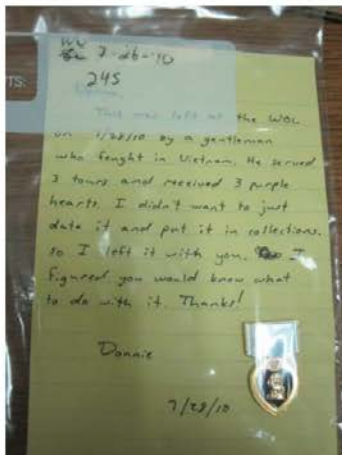 TS:
WC 7-28-10
245
This was left at the WOC
on 7/28/10 by a gentleman
who fought in Vietnam. He served
3 tours and received 3 purple
hearts. I didn't want to just
date it and put it in collections.
so I left it with you. I
figured you would know what
to do with it. Thanks!
Donnie
7/28/10